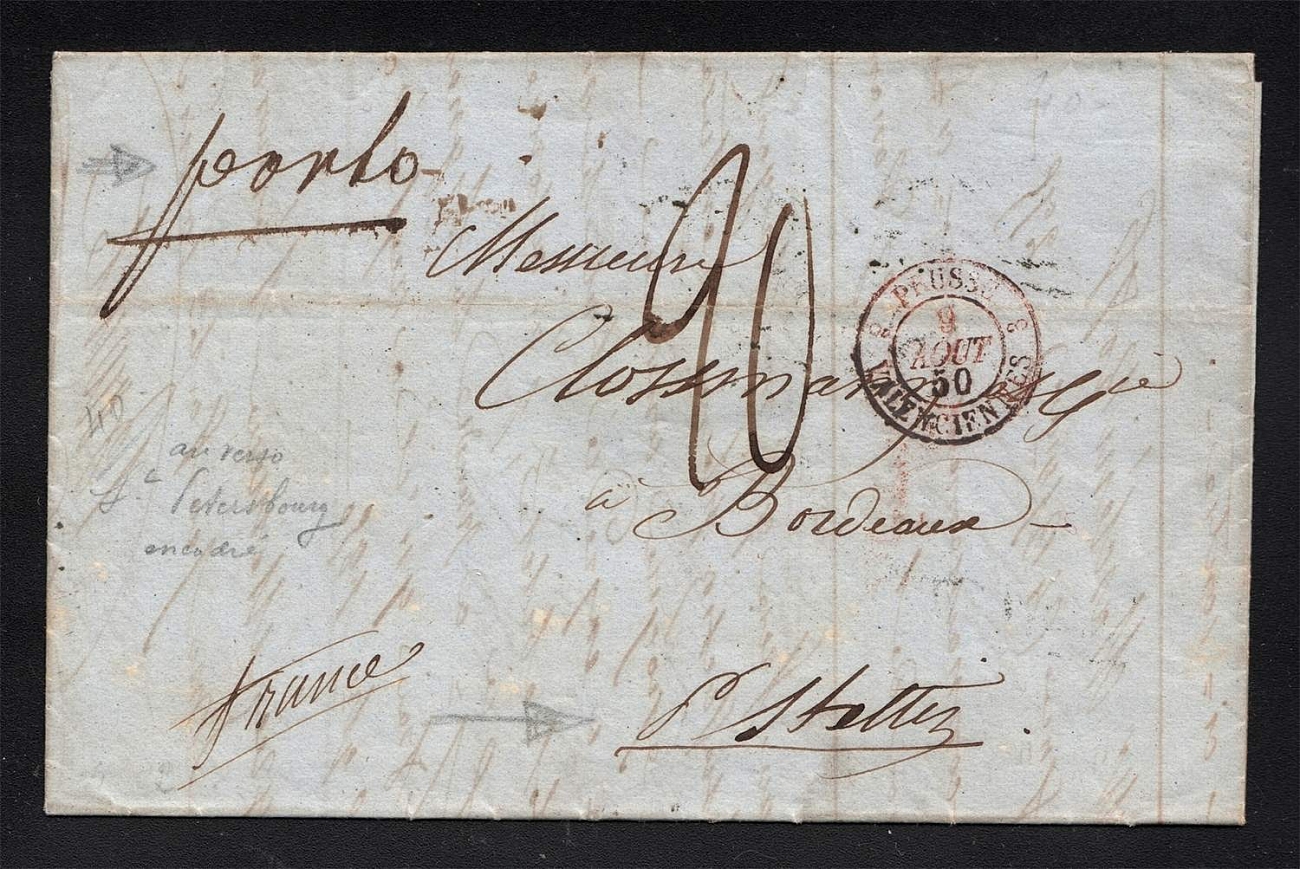 porto
Messieurs
Clossmann & Cie
à Bordeaux
20
PRUSSE
3 3
9
AOUT
50
VALENCIENNES
40
au verso
St Petersbourg
encadré
France
pr Stettin